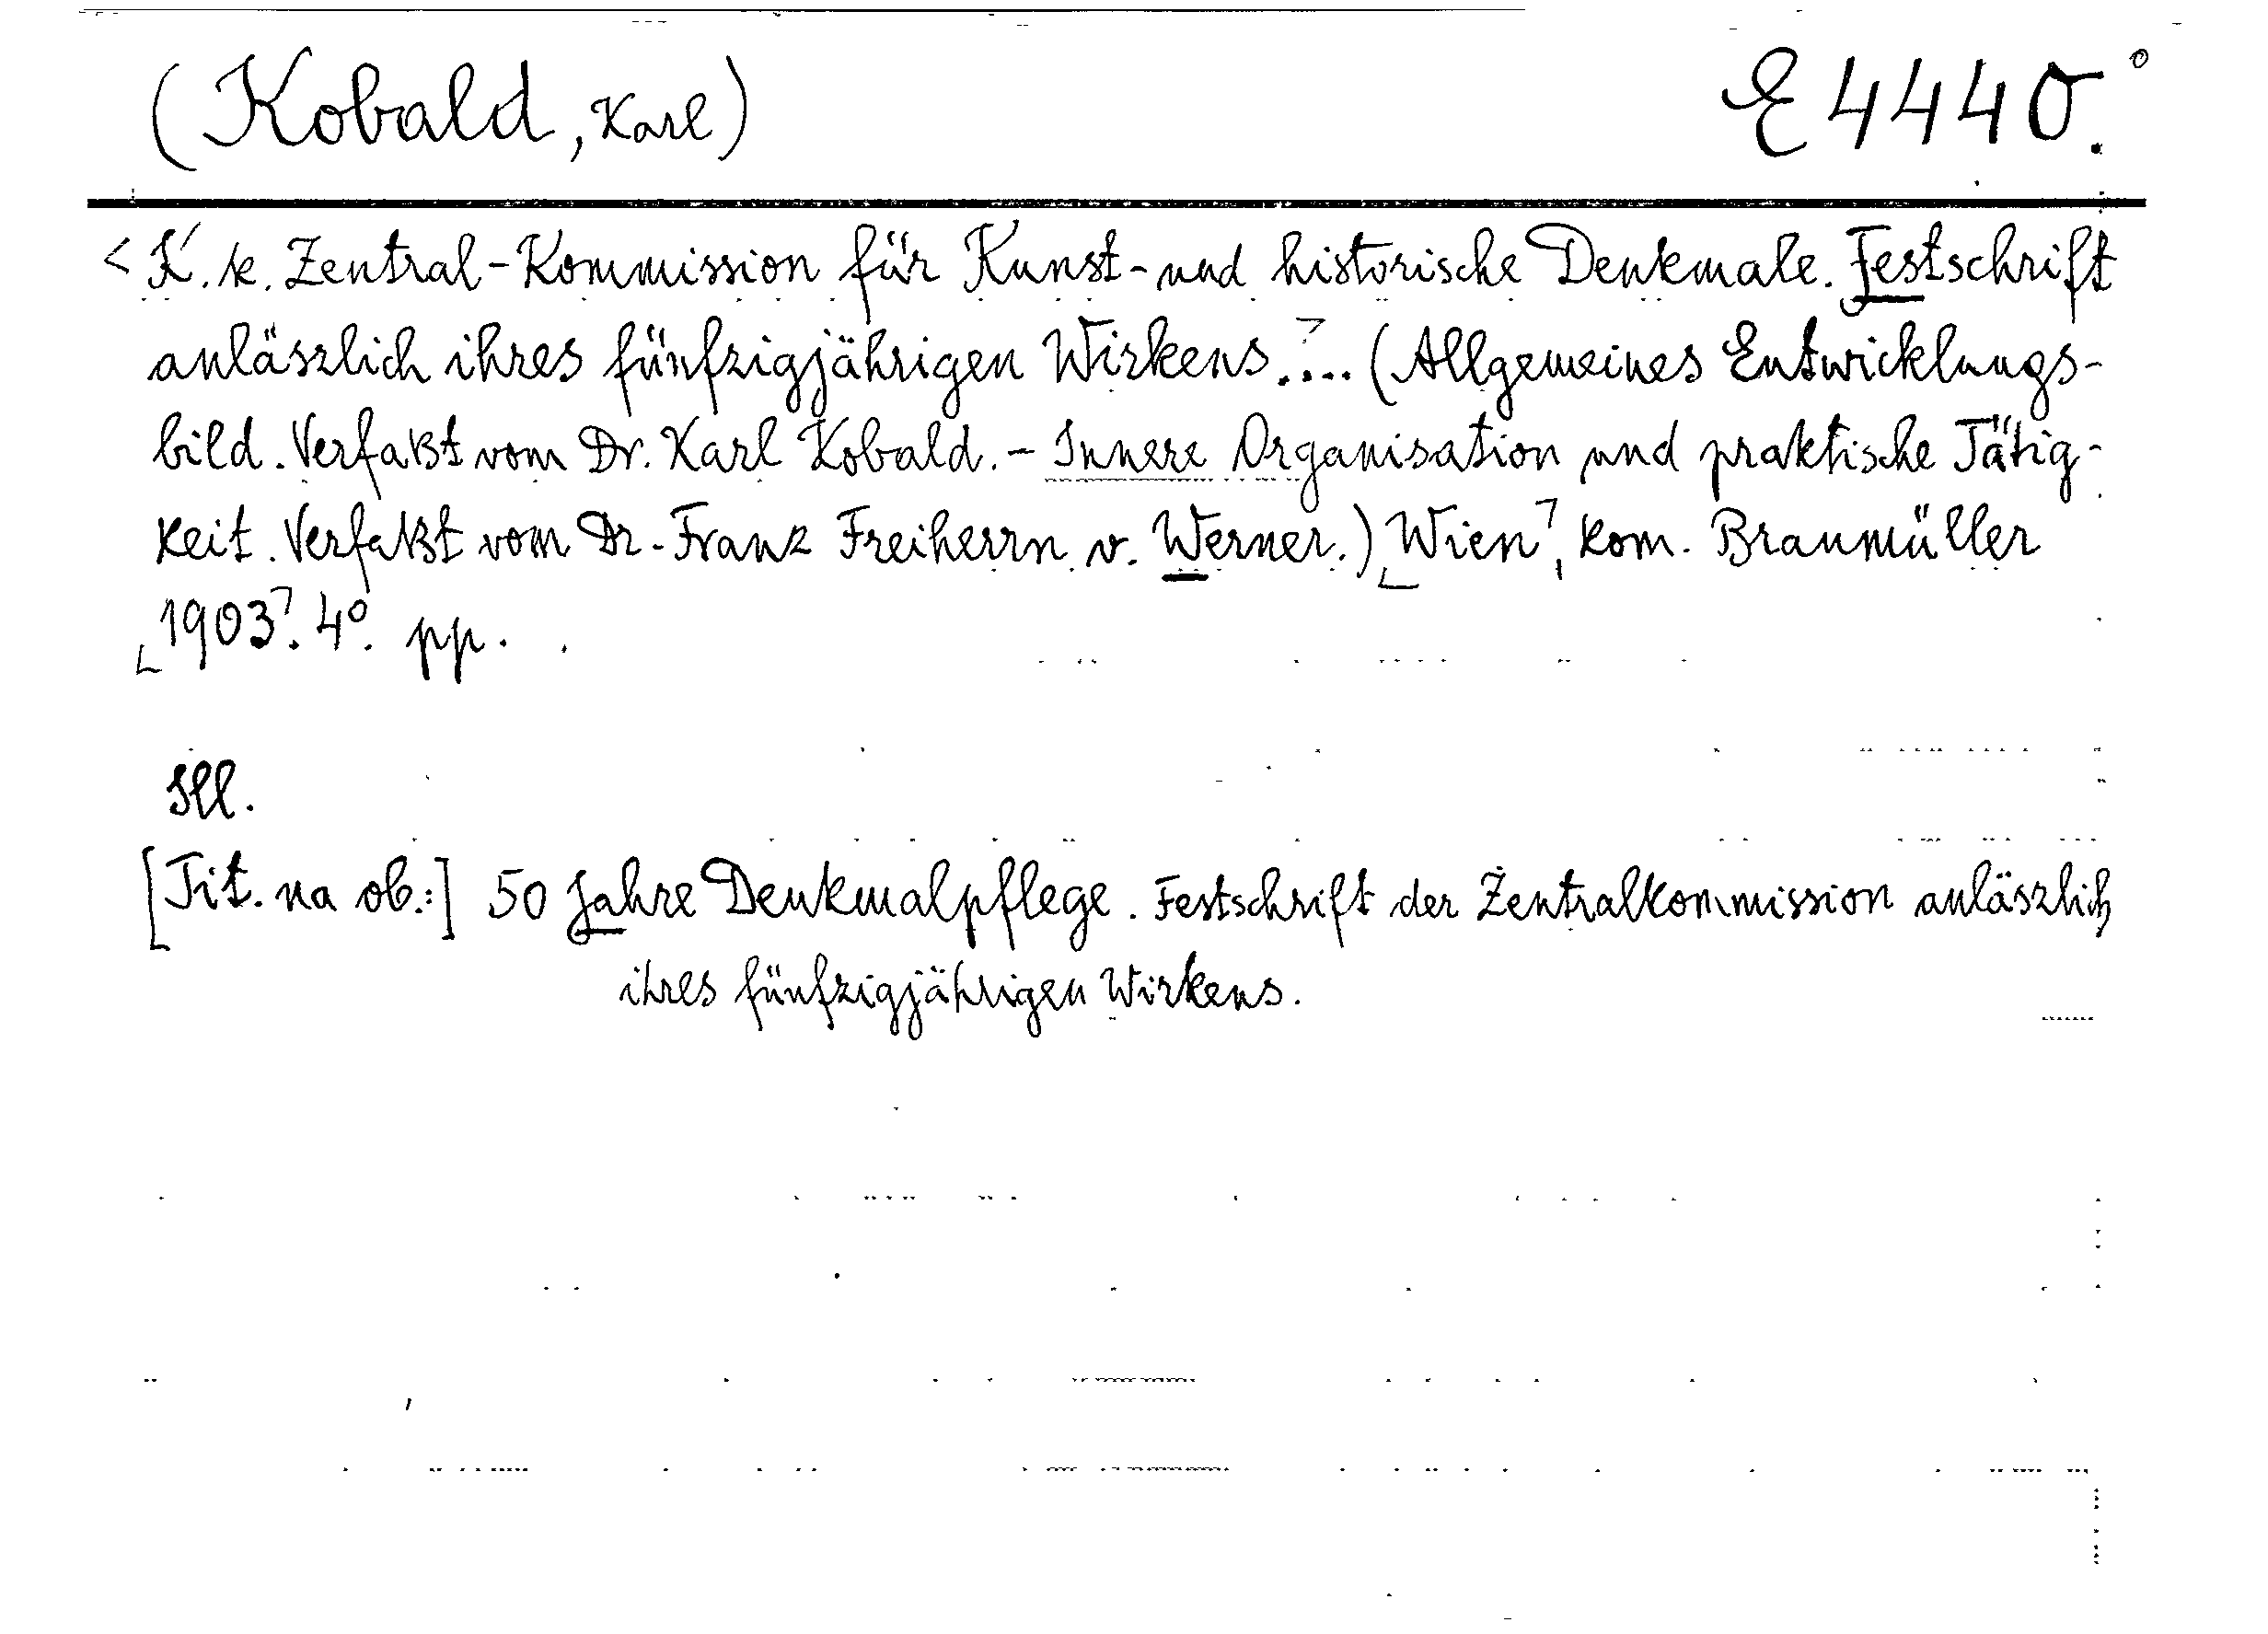 (Kobald, Karl) E 4440.°
<K. k. Zentral-Kommission für Kunst- und historische Denkmale. Festschrift
anläszlich ihres fünfzigjährigen Wirkens.... (Allgemeines Entwicklungs-
bild. Verfaßt vom Dr. Karl Kobald. - Innere Organisation und praktische Tätig-
keit. Verfaßt vom Dr. Franz Freiherrn v. Werner.) ⌞Wien⌝, kom. Braumüller
⌞1903⌝. 4°. pp.
Ill.
[Tit. na ob.:] 50 Jahre Denkmalpflege. Festschrift der Zentralkommission anläszlich
ihres fünfzigjährigen Wirkens.